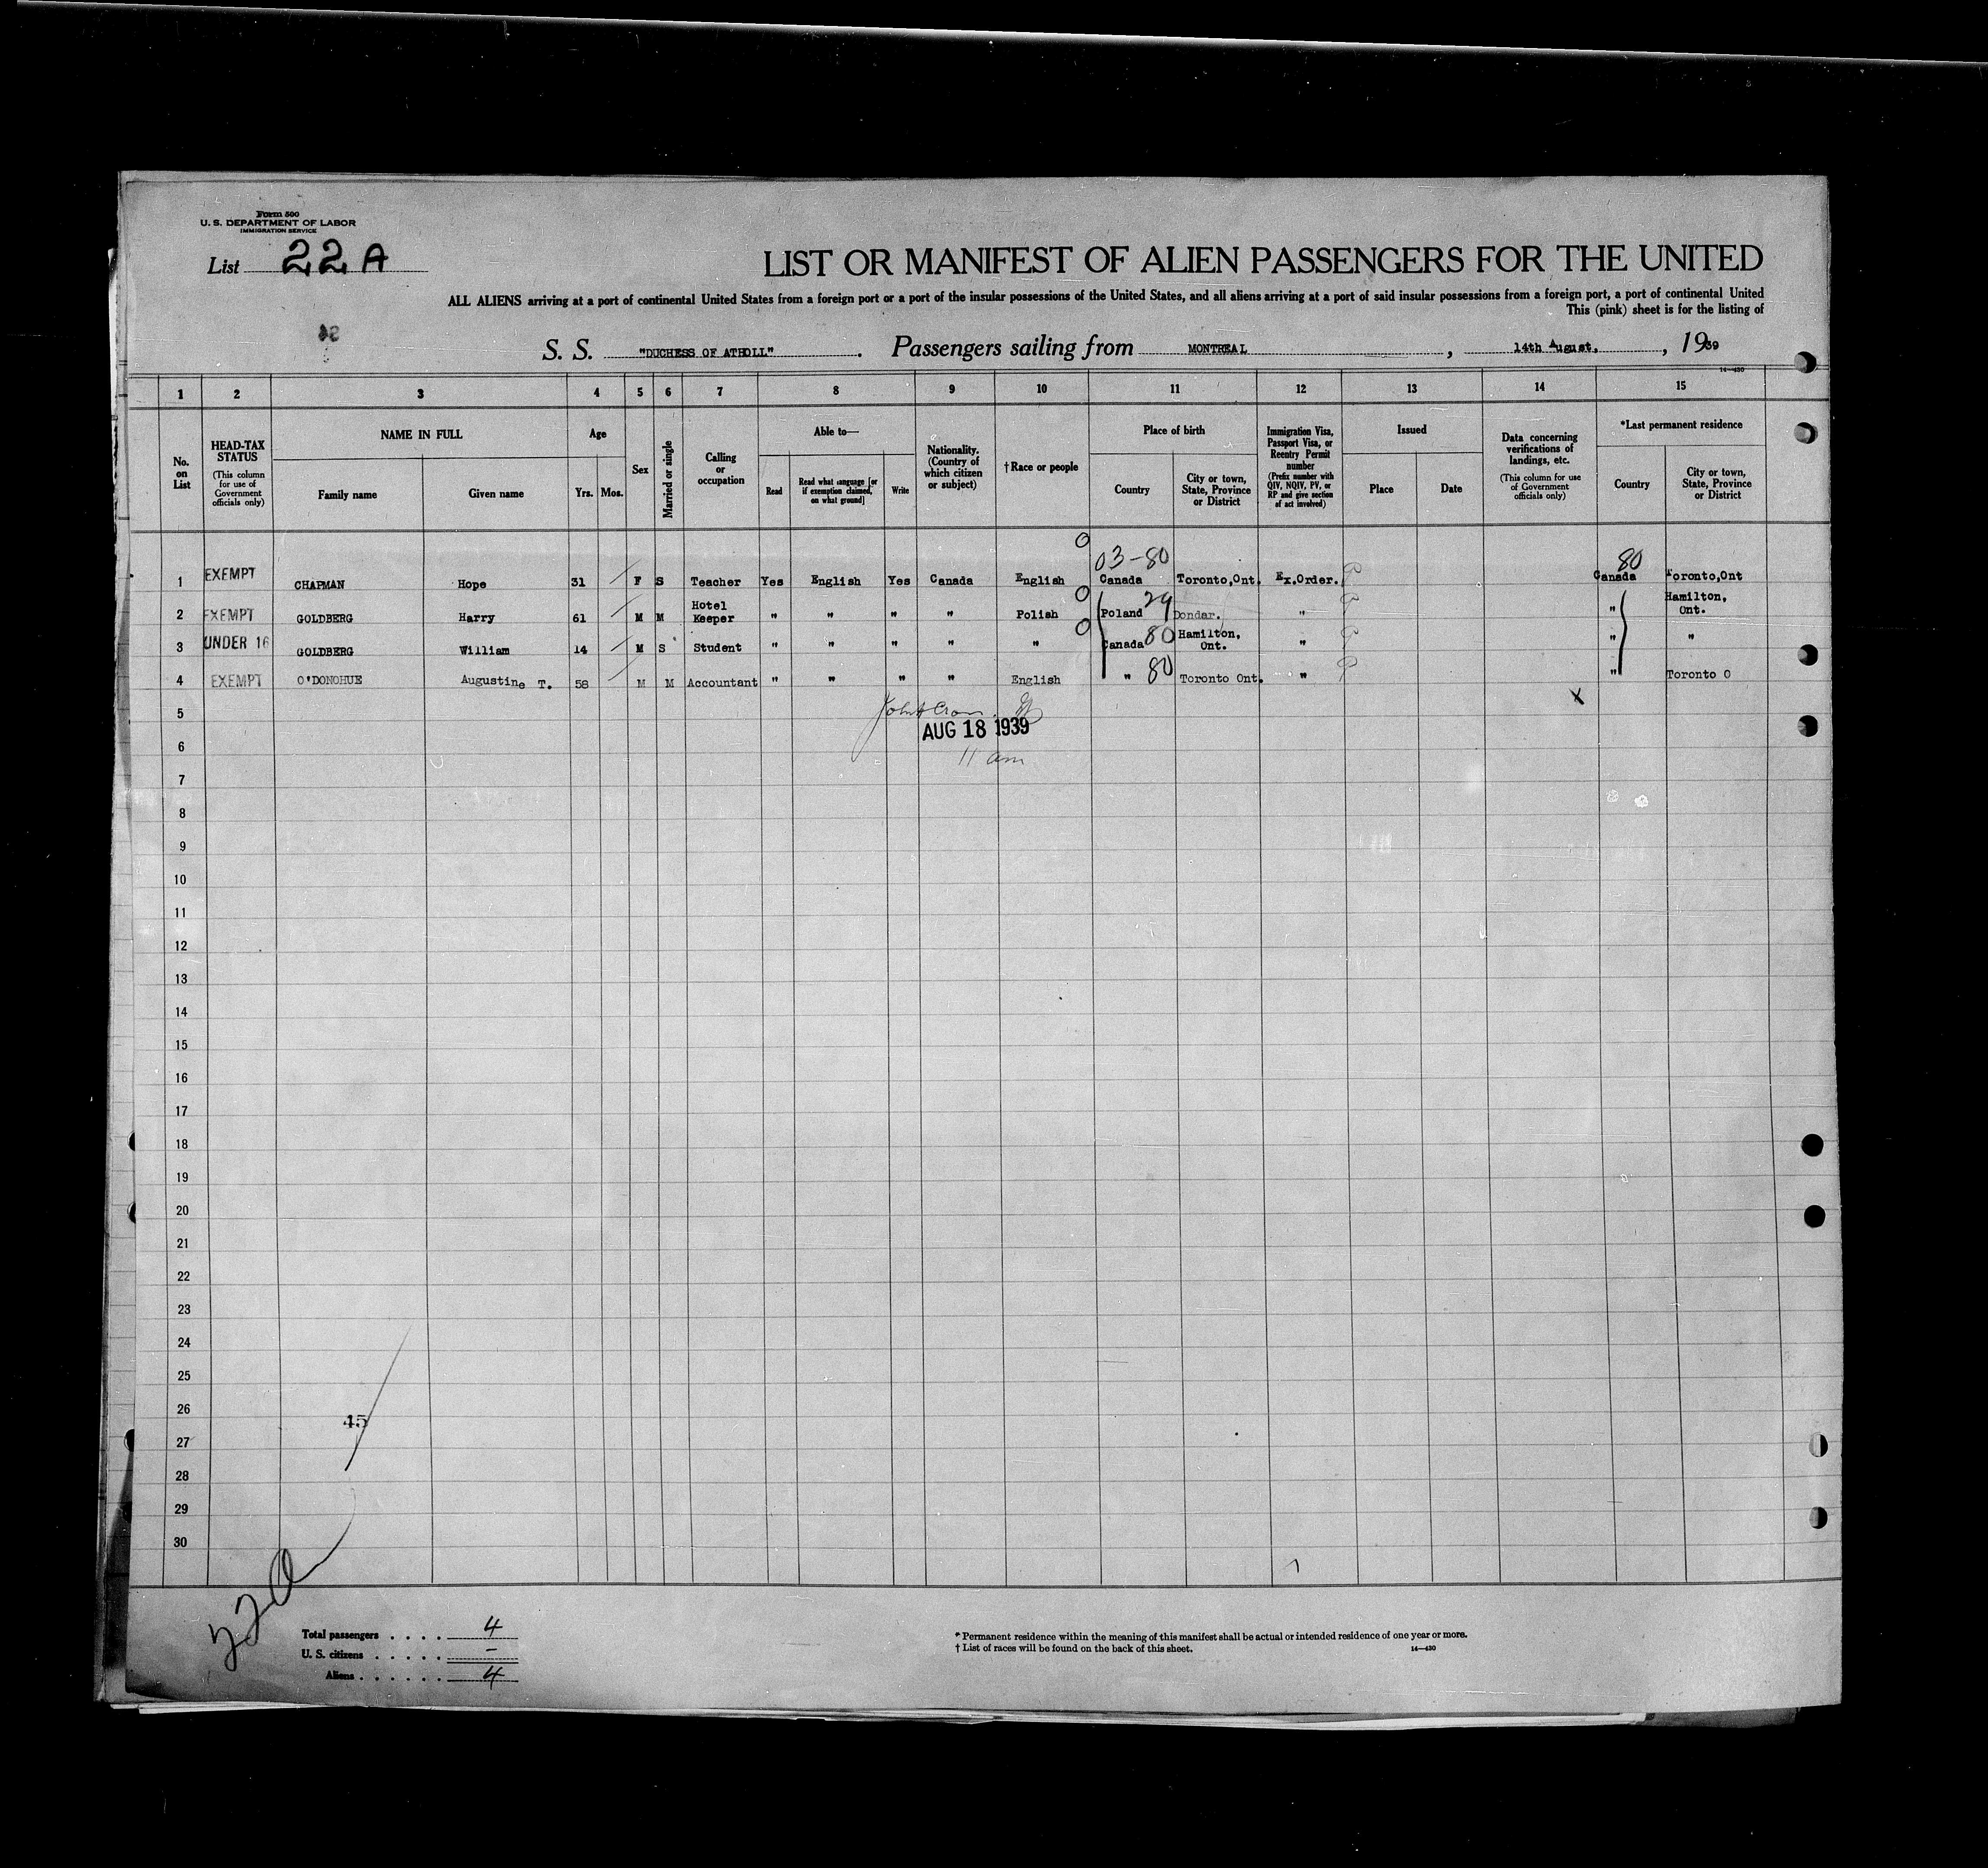 Form 500
U. S. DEPARTMENT OF LABOR
IMMIGRATION SERVICE
List 22A
LIST OR MANIFEST OF ALIEN PASSENGERS FOR THE UNITED
ALL ALIENS arriving at a port of continental United States from a foreign port or a port of the insular possessions of the United States, and all aliens arriving at a port of said insular possessions from a foreign port, a port of continental United
This (pink) sheet is for the listing of
S. S. "DUCHESS OF ATHOLL". Passengers sailing from MONTREAL, 14th August, 1939
14—430
1 2 3 4 5 6 7 8 9 10 11 12 13 14 15
No. on List
HEAD-TAX STATUS (This column for use of Government officials only)
NAME IN FULL
Family name Given name
Age
Yrs. Mos.
Sex
Married or single
Calling or occupation
Able to—
Read
Read what language [or if exemption claimed, on what ground]
Write
Nationality. (Country of which citizen or subject)
† Race or people
Place of birth
Country
City or town, State, Province or District
Immigration Visa, Passport Visa, or Reentry Permit number (Prefix number with QIV, NQIV, PV, or RP and give section of act involved)
Issued
Place Date
Data concerning verifications of landings, etc. (This column for use of Government officials only)
*Last permanent residence
Country
City or town, State, Province or District
03-80 80
1 EXEMPT CHAPMAN Hope 31 F S Teacher Yes English Yes Canada English Canada Toronto,Ont. Ex.Order. Canada Toronto,Ont
2 EXEMPT GOLDBERG Harry 61 M M Hotel Keeper " " " " Polish Poland 29 Dondar. " " Hamilton, Ont.
3 UNDER 16 GOLDBERG William 14 M S Student " " " " " Canada 80 Hamilton, Ont. " " "
4 EXEMPT O'DONOHUE Augustine T. 58 M M Accountant " " " " English " 80 Toronto Ont. " " Toronto O
X
5
AUG 18 1939
6
11 am
7
8
9
10
11
12
13
14
15
16
17
18
19
20
21
22
23
24
25
26
45
27
28
29
30
Total passengers . . . . 4
U. S. citizens . . . . . –
Aliens . . . . . . 4
* Permanent residence within the meaning of this manifest shall be actual or intended residence of one year or more.
† List of races will be found on the back of this sheet. 14—430